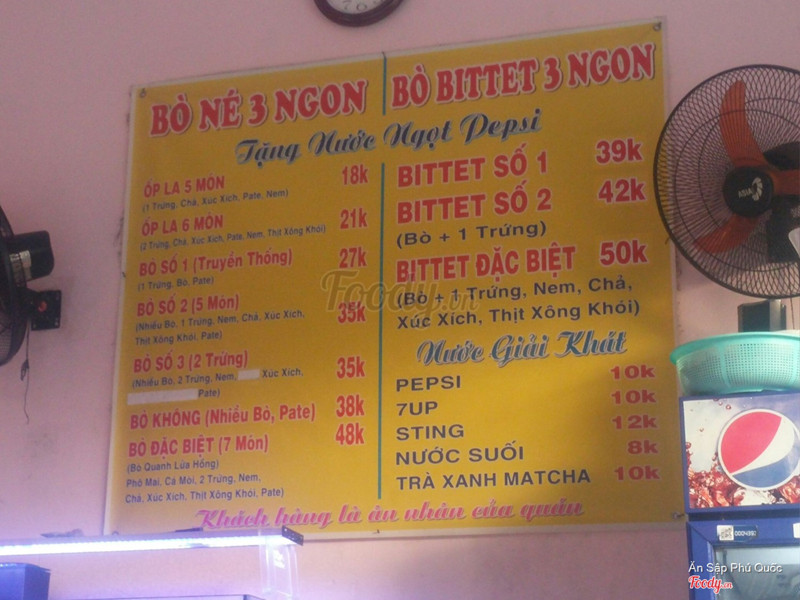 BÒ NÉ 3 NGON
BÒ BITTET 3 NGON
Tặng Nước Ngọt Pepsi
ỐP LA 5 MÓN 18k
(1 Trứng, Chả, Xúc Xích, Pate, Nem)
ỐP LA 6 MÓN 21k
(2 Trứng, Chả, Xúc Xích, Pate, Nem, Thịt Xông Khói)
BÒ SỐ 1 (Truyền Thống) 27k
(1 Trứng, Bò, Pate)
BÒ SỐ 2 (5 Món) 35k
(Nhiều Bò, 1 Trứng, Nem, Chả, Xúc Xích,
Thịt Xông Khói, Pate)
BÒ SỐ 3 (2 Trứng) 35k
(Nhiều Bò, 2 Trứng, Nem, Xúc Xích,
Pate)
BÒ KHÔNG (Nhiều Bò, Pate) 38k
BÒ ĐẶC BIỆT (7 Món) 48k
(Bò Quanh Lửa Hồng)
Phô Mai, Cá Mòi, 2 Trứng, Nem,
Chả, Xúc Xích, Thịt Xông Khói, Pate)
BITTET SỐ 1 39k
BITTET SỐ 2 42k
(Bò + 1 Trứng)
BITTET ĐẶC BIỆT 50k
(Bò + 1 Trứng, Nem, Chả,
Xúc Xích, Thịt Xông Khói)
Nước Giải Khát
PEPSI 10k
7UP 10k
STING 12k
NƯỚC SUỐI 8k
TRÀ XANH MATCHA 10k
Khách hàng là ân nhân của quán
Foody.vn
Ăn Sập Phú Quốc
Foody.vn